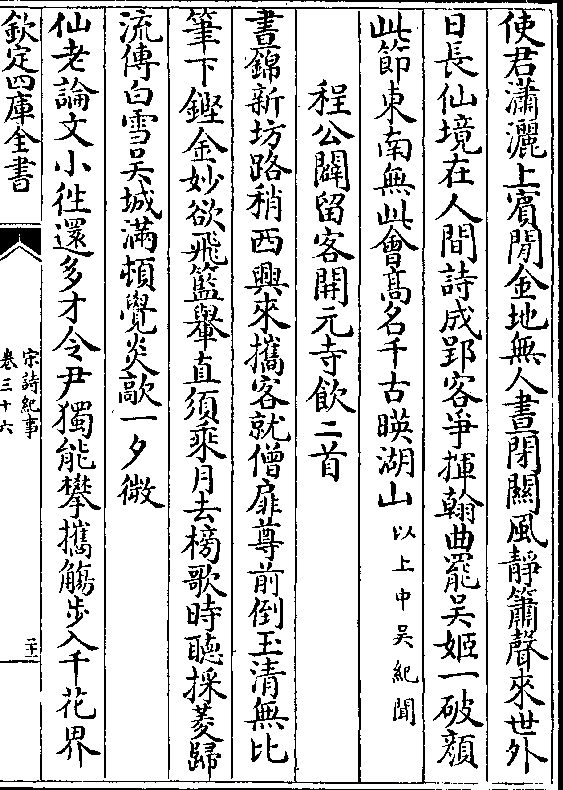 使君瀟灑上賔閒金地無人晝閉關風靜簫聲來世外
日長仙境在人間詩成郢客爭揮翰曲罷吳姬一破顔
此節東南無此會髙名千古暎湖山以上中吳紀聞
程公闢留客開元寺飲二首
晝錦新坊路稍西興來攜客就僧扉尊前倒玉清無比
筆下鏗金妙欲飛籃轝直須乘月去榜歌時聽採菱歸
流傳白雪吳城滿頓覺炎歊一夕微
仙老論文小徃還多才令尹獨能攀攜觴步入千花界
欽定四庫全書
宋詩紀事
卷三十六
二十